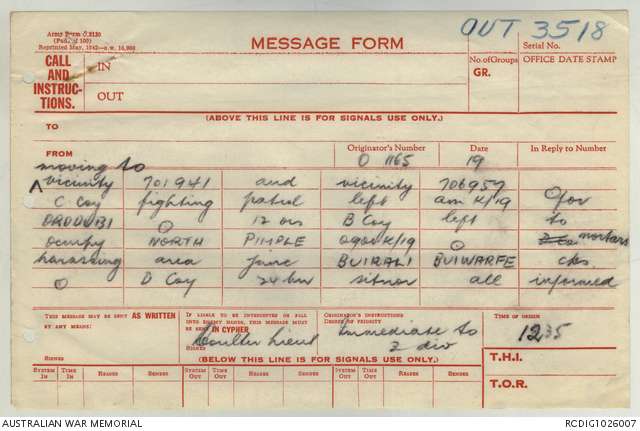 Army Form C.2130
(Pads of 100)
Reprinted May, 1942
OUT 3518
MESSAGE FORM
Serial No.
CALL AND INSTRUCTIONS.
IN
OUT
No. of Groups
GR.
OFFICE DATE STAMP
(ABOVE THIS LINE IS FOR SIGNALS USE ONLY.)
TO
FROM
Originator's Number
Date
In Reply to Number
moving to
O 1165
19
vicinity 701941 and vicinity 706957
C Coy fighting patrol left am K/19 for
ORODUBI O 12 ors B Coy left to
occupy NORTH PIMPLE 0900K/19 O mortars
harassing area junc BUIRALI BUIWARFE cks
O D Coy 24 bn sitnor all informed
THIS MESSAGE MAY BE SENT AS WRITTEN
BY ANY MEANS:
IF LIABLE TO BE INTERCEPTED OR FALL INTO ENEMY HANDS, THIS MESSAGE MUST BE SENT IN CYPHER
ORIGINATOR'S INSTRUCTIONS
DEGREE OF PRIORITY
TIME OF ORIGIN
Immediate to
3 div
1235
Coulter Lieut
SIGNED
SIGNED
(BELOW THIS LINE IS FOR SIGNALS USE ONLY.)
T.H.I.
T.O.R.
SYSTEM IN TIME IN READER SENDER SYSTEM OUT TIME OUT READER SENDER SYSTEM OUT TIME OUT READER SENDER
AUSTRALIAN WAR MEMORIAL
RCDIG1026007